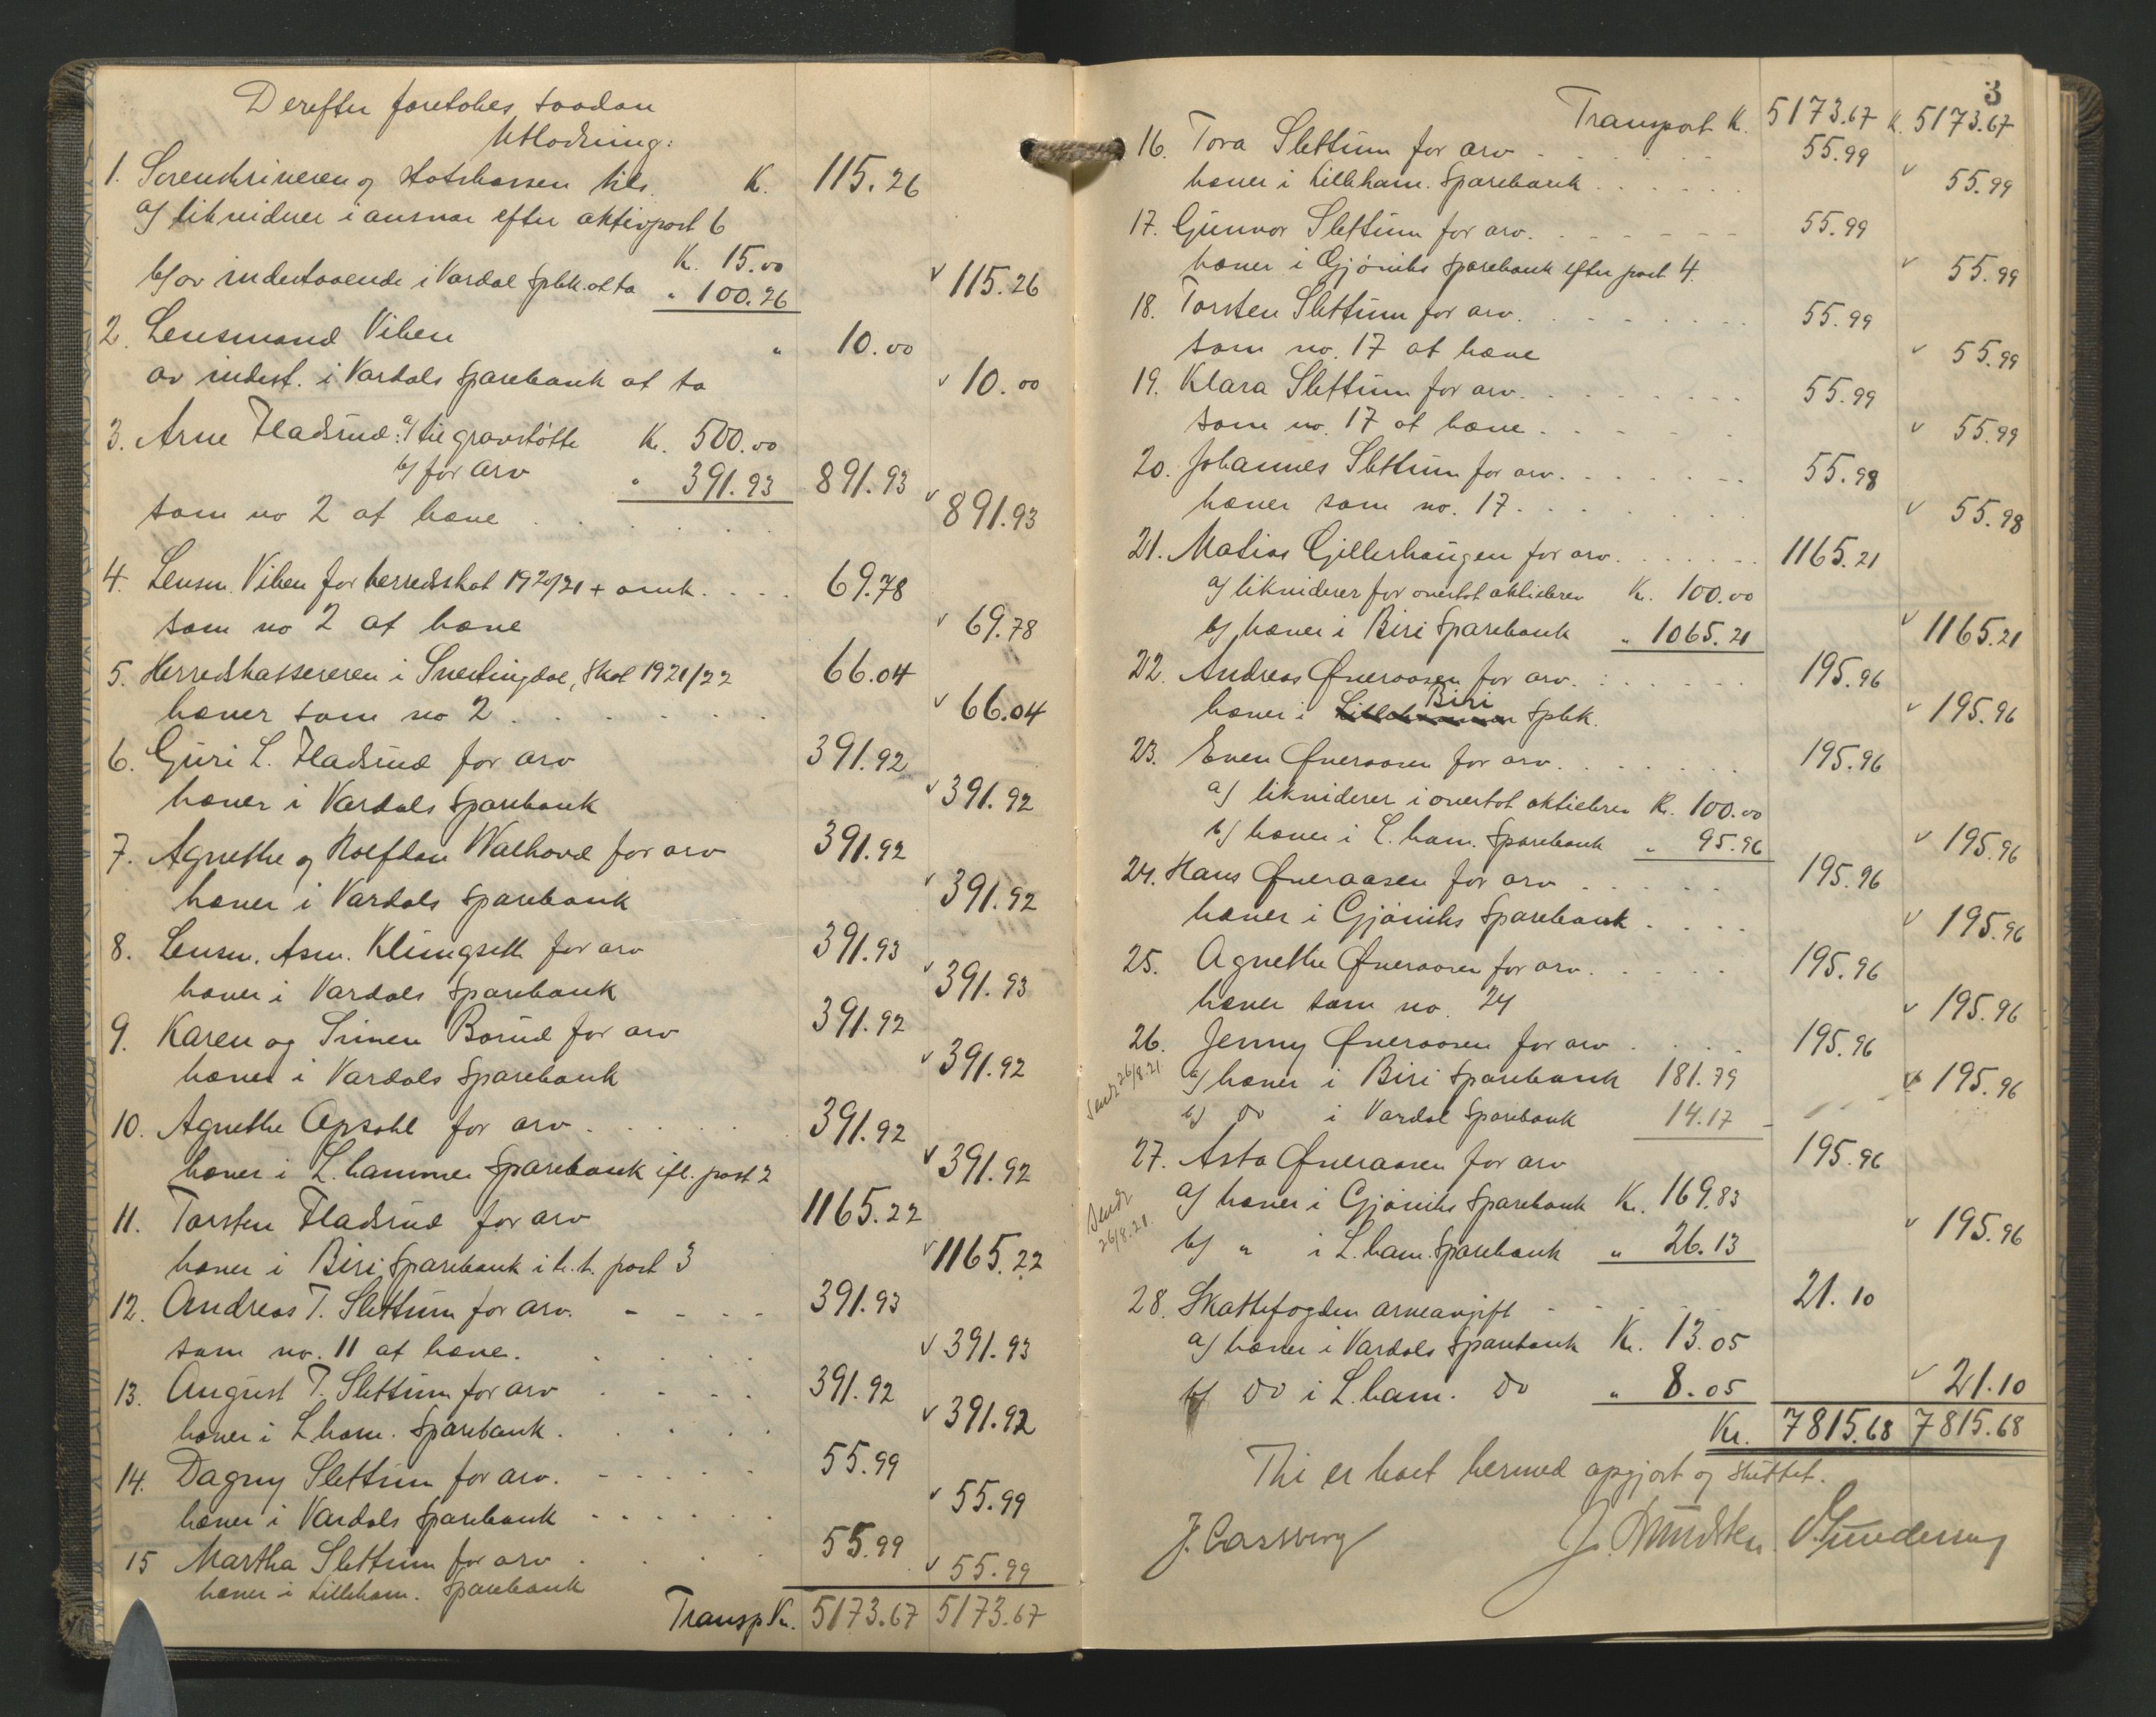 Derefter foretokes saadan
Utlodning:
1. Sorenskriveren og statskassen tils. K. 115.26
a/ likviderer i ansvar efter aktivpost 6
K. 15.00
b/ av indestaaende i Vardal Spbk. at ta " 100.26 v 115.26
2. Lensmand Viken " 10.00
av indest. i Vardals Sparebank at ta v 10.00
3. Arne Fladsrud: a/ til gravstøtte K. 500.00
b/ for arv " 391.93 891.93
som no 2 at hæve v 891.93
4. Lensm. Viken for herredskat 1920/21 + omk. 69.78
som no 2 at hæve v 69.78
5. Herredskassereren i Snertingdal, Skat 1921/22 66.04
hæver som no 2 v 66.04
6. Guri L. Fladsrud for arv 391.92
hæver i Vardals Sparebank v 391.92
7. Agnethe og Rolfdan Walhovd for arv 391.92
hæver i Vardals Sparebank v 391.92
8. Lensm. Asm. Klungseth for arv 391.93
hæver i Vardals Sparebank v 391.93
9. Karen og Simen Borud for arv 391.92
hæver i Vardals Sparebank v 391.92
10. Agnethe Opsahl for arv 391.92
hæver i L.hammer Sparebank ifl. post 2 v 391.92
11. Torsten Fladsrud for arv 1165.22
hæver i Biri Sparebank i h.t. post 3 v 1165.22
12. Andreas T. Slettum for arv. 391.93
som no. 11 at hæve. v 391.93
13. August T. Slettum for arv 391.92
hæver i L.ham. Sparebank v 391.92
14. Dagny Slettum for arv. 55.99
hæver i Vardals Sparebank v 55.99
15 Martha Slettum for arv 55.99
hæver i Lilleham. Sparebank v 55.99
Transp. Kr. 5173.67 5173.67
3
Transport K. 5173.67 K. 5173.67
16. Tora Slettum for arv 55.99
hæver i Lilleham. Sparebank v 55.99
17. Gunvor Slettum for arv. 55.99
hæver i Gjøviks Sparebank efter post 4. v 55.99
18. Torsten Slettum for arv. 55.99
som no. 17 at hæve v 55.99
19. Klara Slettum for arv. 55.99
som no. 17 at hæve v 55.99
20. Johannes Slettum for arv. 55.98
hæver som no. 17 v 55.98
21. Matias Gillerhaugen for arv. 1165.21
a/ likviderer for overtat aktiebrev Kr. 100.00
b/ hæver i Biri Sparebank " 1065.21 v 1165.21
22. Andreas Øveraasen for arv. 195.96
hæver i Lillehammer Biri Spbk. v 195.96
23. Even Øveraasen for arv. 195.96
a/ likviderer i overtat aktiebrev K. 100.00
b/ hæver i L.ham. Sparebank " 95.96 v 195.96
24. Hans Øveraasen for arv 195.96
hæver i Gjøviks Sparebank v 195.96
25. Agnethe Øveraasen for arv. 195.96
hæver som no. 24 v 195.96
26. Jenny Øveraasen for arv 195.96
Sendt 26/8.21. a/ hæver i Biri Sparebank 181.79 v 195.96
b/ do i Vardal Sparebank 14.17
27. Asta Øveraasen for arv 195.96
Sendt 26/8.21. a/ hæver i Gjøviks Sparebank Kr. 169.83
b/ " i L.ham. Sparebank " 26.13 v 195.96
28. Skattefogden arveavgift 21.10
a/ hæver i Vardals Sparebank Kr. 13.05
b/ do i L.ham. do " 8.05 v 21.10
Kr. 7815.68 7815.68
Thi er boet hermed opgjort og sluttet.